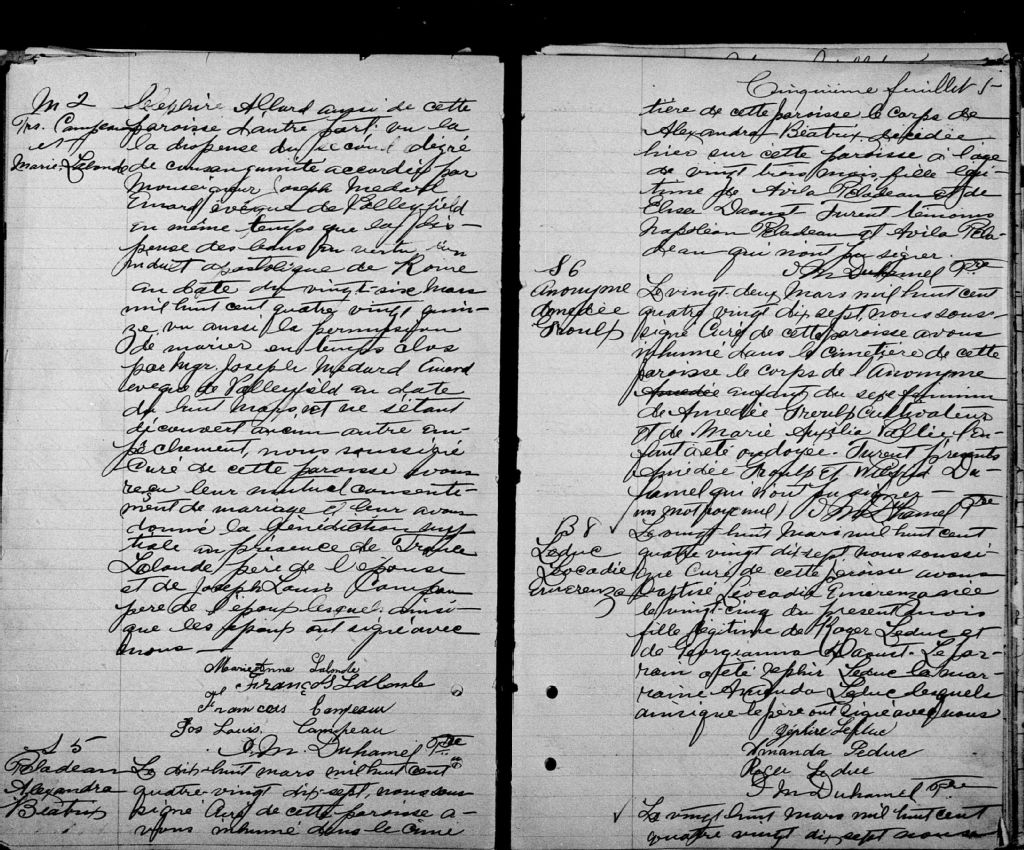 M 2
Frs. Campeau
et
Marie Lalonde
Zéphire Allard aussi de cette
paroisse d'autre part: vu la
la dispense du second degré
de consanguinité accordée par
Monseigneur Joseph Médard
Emard évêque de Valleyfield
en même temps que la dis-
pense des bans en vertu d'un
indult apostolique de Rome
en date du vingt-six mars
mil huit cent quatre vingt quin-
ze, vu aussi la permission
de marier en temps clos
par Mgr. Joseph Médard Emard
évêque de Valleyfield en date
du huit mars et ne s'étant
découvert aucun autre em-
pêchement, nous soussigné
Curé de cette paroisse avons
reçu leur mutuel consente-
ment de mariage et leur avons
donné la bénédiction nup-
tiale en présence de
Lalonde père de l'épouse
et de Joseph Louis Campeau
père de l'époux lesquels ainsi
que les époux ont signé avec
nous —
Marie Anne Lalonde
François Lalonde
François Campeau
Jos Louis Campeau
J. M. Duhamel Ptre
S 5
Péladeau
Alexandra
Béatrix
Le dix-huit mars mil huit cent
quatre vingt dix-sept, nous sous
signé Curé de cette paroisse a-
vons inhumé dans le cime
Cinquième feuillet 5
tière de cette paroisse le corps de
Alexandra Béatrix décédée
hier sur cette paroisse à l'age
de vingt trois mois, fille légi-
time de Avila Péladeau et de
Elisa Daoust. Furent témoins
Napoléon Péladeau et Avila Péla-
deau qui n'ont pu signer.
J M Duhamel Ptre
S 6
Anonyme
Amédée
Groulx
Le vingt-deux Mars mil huit cent
quatre vingt dix sept, nous sous-
signé Curé de cette paroisse avons
inhumé dans le cimetière de cette
paroisse le corps de l'Anonyme
Amedée enfant du sexe féminin
de Amédée Groulx Cultivateur
et de Marie Auxilia Vallée l'en-
fant a été ondoyée. Furent présents
Amédée Groulx et Wilfrid Du-
hamel qui n'ont pu signer —
un mot rayé nul J M Duhamel Ptre
B 8
Leduc
Léocadie
Emerenza
Le vingt huit Mars mil huit cent
quatre vingt dix-sept nous soussi-
gné Curé de cette paroisse avons
baptisé Léocadie Emerenza née
le vingt-cinq du present mois
fille légitime de Roger Leduc et
de Georgianna Daoust. Le par-
rain a été Zéphir Leduc la mar-
raine Amanda Leduc lesquels
ainsi que le père ont signé avec nous
Zéphire Leduc
Amanda Leduc
Roger Leduc
J M Duhamel Ptre
Le vingt huit Mars mil huit cent
quatre vingt dix sept nous s